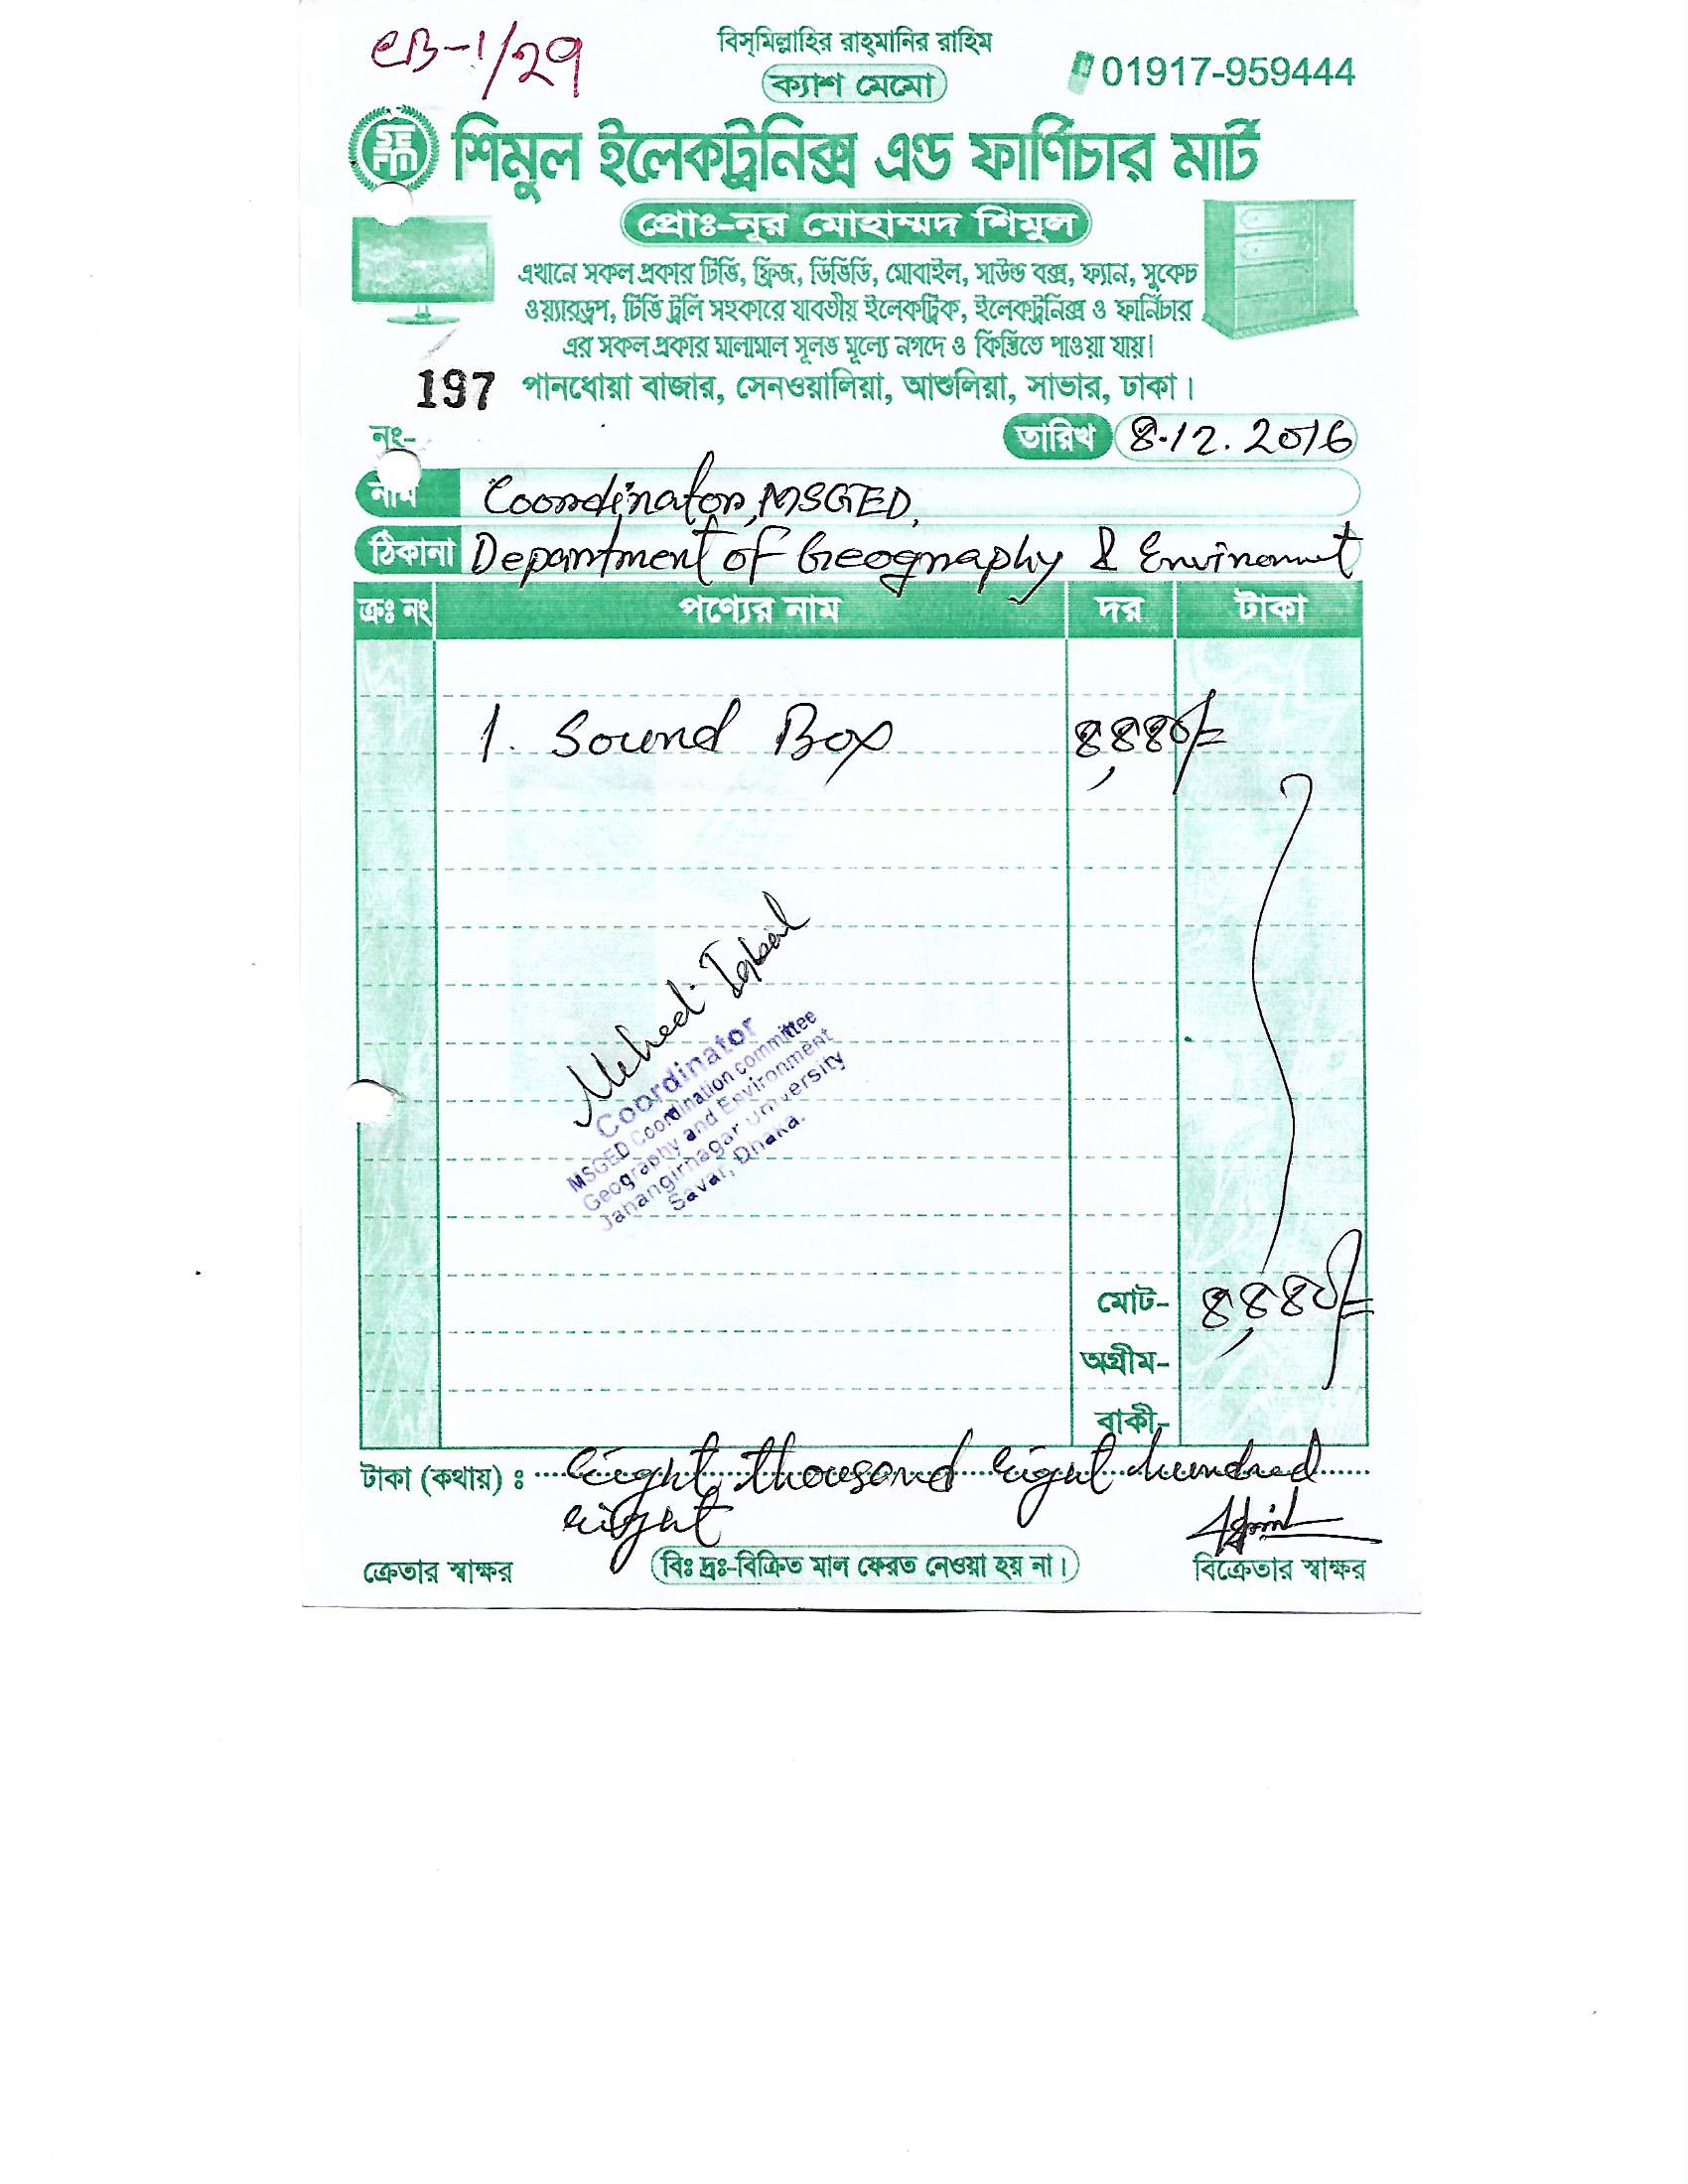 CB-1/29
বিস্‌মিল্লাহির রাহ্‌মানির রাহিম
ক্যাশ মেমো
01917-959444
SE
FM
শিমুল ইলেকট্রনিক্স এন্ড ফার্ণিচার মার্ট
প্রোঃ-নূর মোহাম্মদ শিমুল
এখানে সকল প্রকার টিভি, ফ্রিজ, ডিভিডি, মোবাইল, সাউন্ড বক্স, ফ্যান, সুকেচ
ওয়্যারড্রপ, টিভি ট্রলি সহকারে যাবতীয় ইলেকট্রিক, ইলেকট্রনিক্স ও ফার্নিচার
এর সকল প্রকার মালামাল সূলভ মূল্যে নগদে ও কিস্তিতে পাওয়া যায়।
197 পানধোয়া বাজার, সেনওয়ালিয়া, আশুলিয়া, সাভার, ঢাকা।
নং- তারিখ 8.12.2016
নাম Coordinator, MSGED,
ঠিকানা Department of Geography & Environment
ক্রঃ নং পণ্যের নাম দর টাকা
1. Sound Box 8,880/=
Mehedi Iqbal
Coordinator
MSGED Coordination committee
Geography and Environment
Jahangirnagar University
Savar, Dhaka.
মোট- 8,880/=
অগ্রীম-
বাকী-
টাকা (কথায়) ঃ Eight thousand eight hundred
eight
ক্রেতার স্বাক্ষর বিঃ দ্রঃ-বিক্রিত মাল ফেরত নেওয়া হয় না। বিক্রেতার স্বাক্ষর